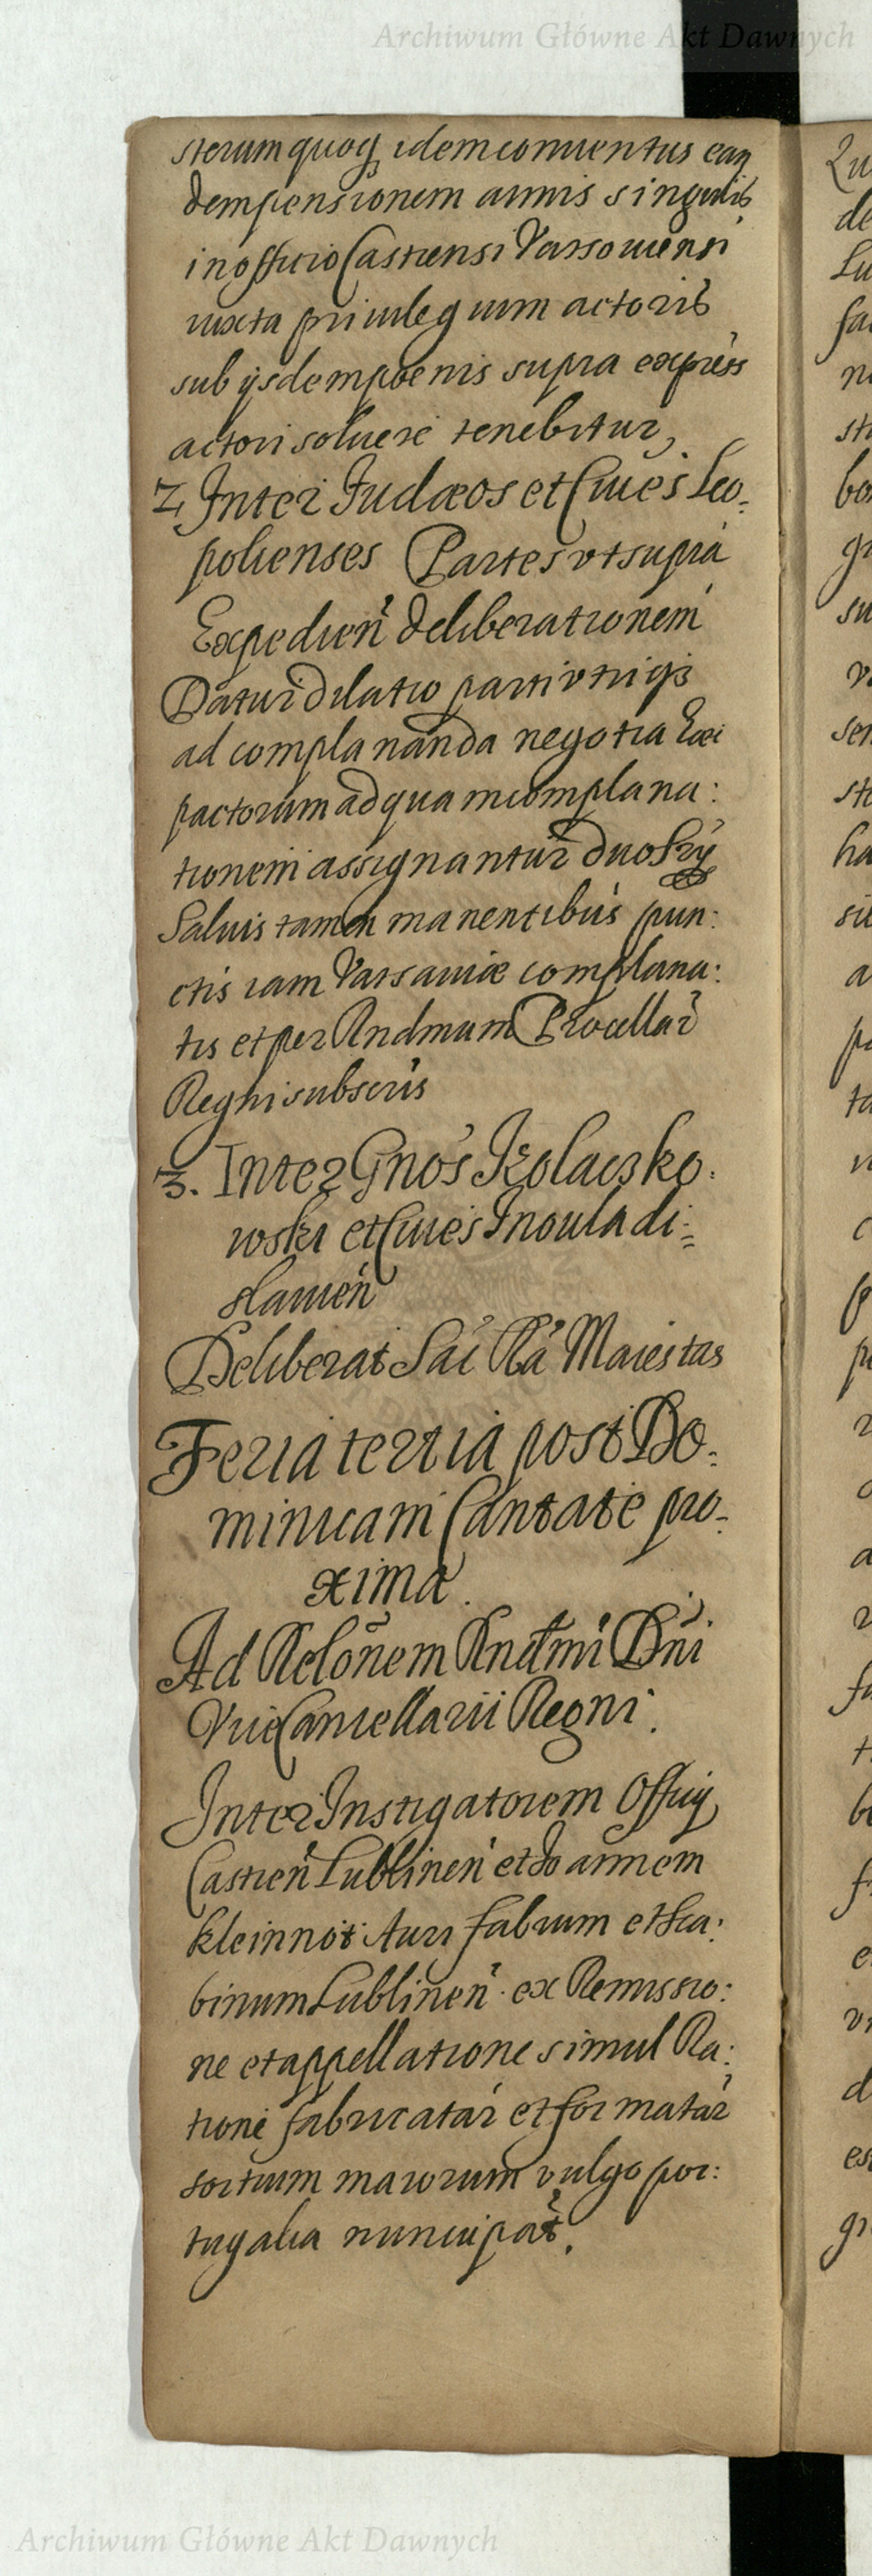 Archiwum Główne Akt Dawnych
sterum quoq idem conuentus ean
dem pensionem annis singulis
in officio Castrensi Varsouiensi
iuxta priuilegium actoris
sub ijsdem poenis supra express
actori soluere tenebitur,
2, Inter Judæos et Ciues Leo-
polienses Partes vt supra
Expedien deliberationem
Datur dilatio parti vtriqs
ad complananda negotia
pactorum ad quam complana:
tionem assignantur duo
Saluis tamen manentibus pun:
ctis iam Varsauiæ complana:
tis et per Rndmum Procellar
Regni subscris
3. Inter Gnos Kolaczko-
wski et Ciues Inouladi-
slauien
Deliberat Sac Ra Maiestas
Feria tertia post Do-
minicam Cantate pro-
xima.
Ad Relonem Rndmi Dni
Vice Cancellarii Regni.
Inter Instigatorem Officij
Castren Lublinen et Joannem
kleinnot Auri fabrum et sca:
binum Lublinen ex Remissio:
ne et appellatione simul Ra:
tione fabricatar et formatar
sortium maiorum vulgo por:
tugalia nuncupat.
Archiwum Główne Akt Dawnych